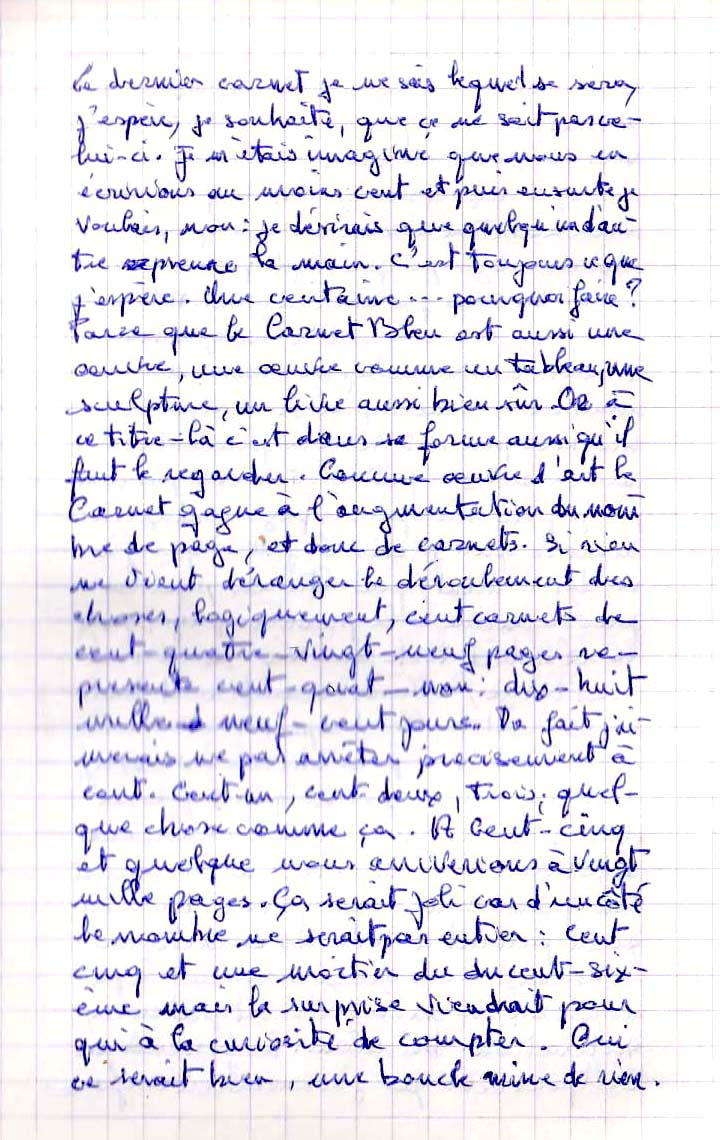 Le dernier carnet je ne sais lequel se sera,
j'espère, je souhaite, que ce ne soit pas ce-
lui-ci. Je m'étais imaginé que nous en
écririons au moins cent et puis ensuite je
voulais, non : je désirais que quelqu'un d'au-
tre reprenne la main. C'est toujours ce que
j'espère. Une centaine... pourquoi faire ?
Parce que le Carnet Bleu est aussi une
oeuvre, une oeuvre comme un tableau, une
sculpture, un livre aussi bien sûr. Or à
ce titre-là c'est dans sa forme aussi qu'il
faut le regarder. Comme oeuvre d'art le
Carnet gagne à l'augmentation du nom
bre de page, et donc de carnets. Si rien
ne vient déranger le déroulement des
choses, logiquement, cent carnets de
cent-quatre-vingt-neuf pages re-
présente cent-quat-non : dix-huit
mille neuf-cent jours. De fait j'ai-
merais ne pas arrêter précisement à
cent. Cent-un, cent-deux, trois, quel-
que chose comme ça. A Cent-cinq
et quelque nous arriverions à vingt
mille pages. Ça serait joli car d'un côté
le nombre ne serait pas entier : cent
cinq et une moitier du du cent-six-
ème mais la surprise viendrait pour
qui à la curiosité de compter. Oui
ce serait bien, une boucle mine de rien.